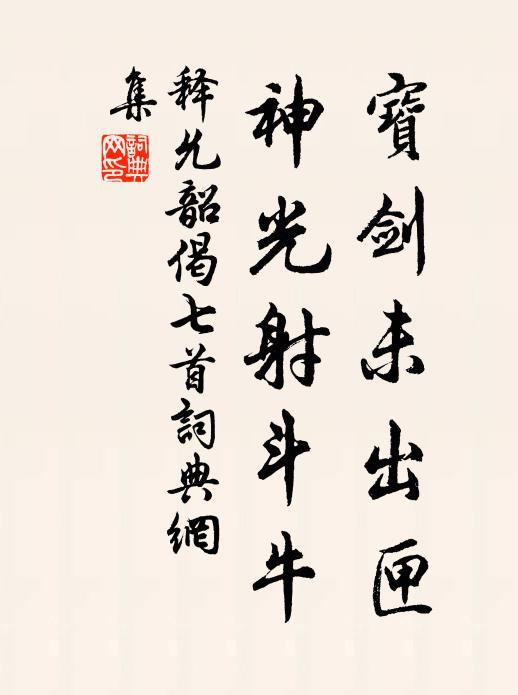 寶劍未出匣
神光射斗牛
释允韶偈七首詞典網
集
詞典
网印